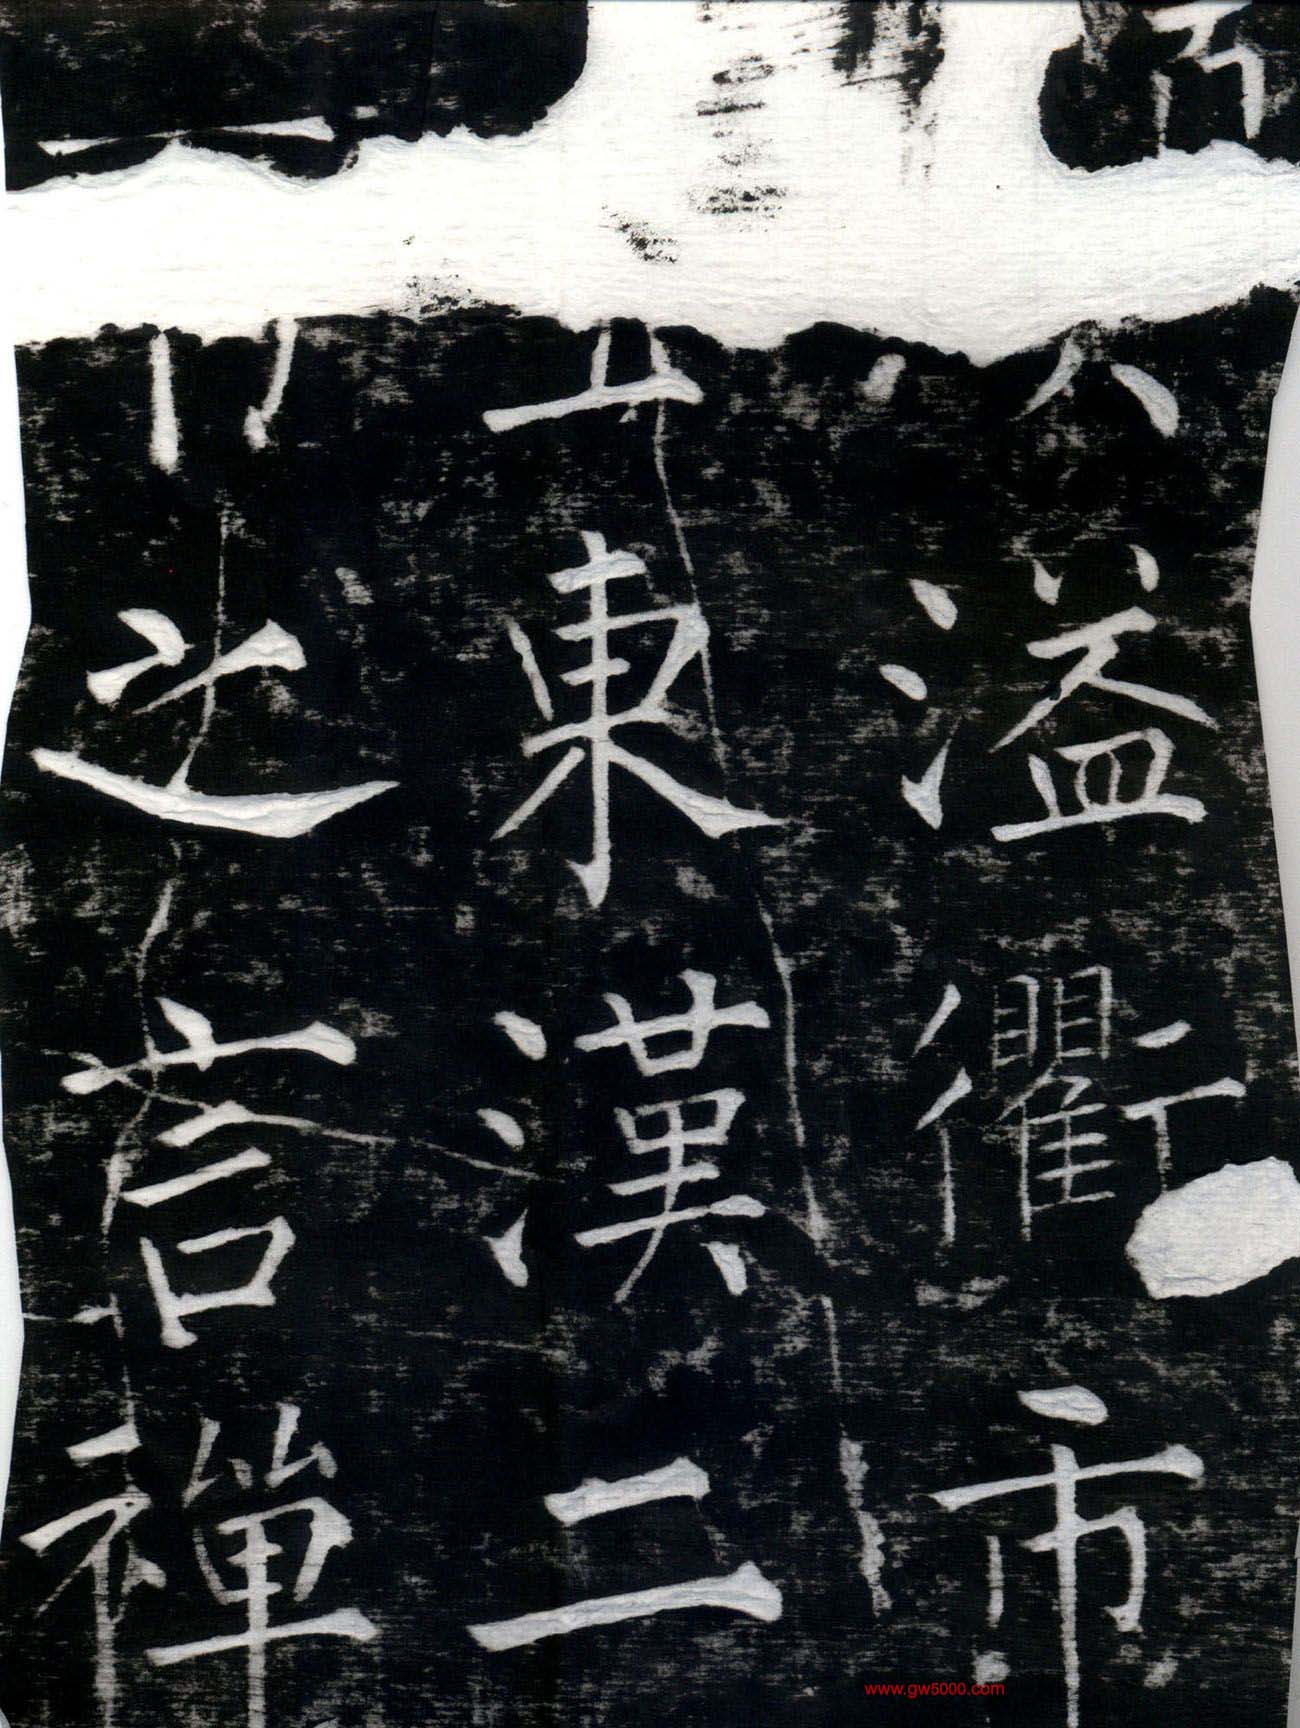 溢衢市
東漢二
之言禪
www.gw5000.com